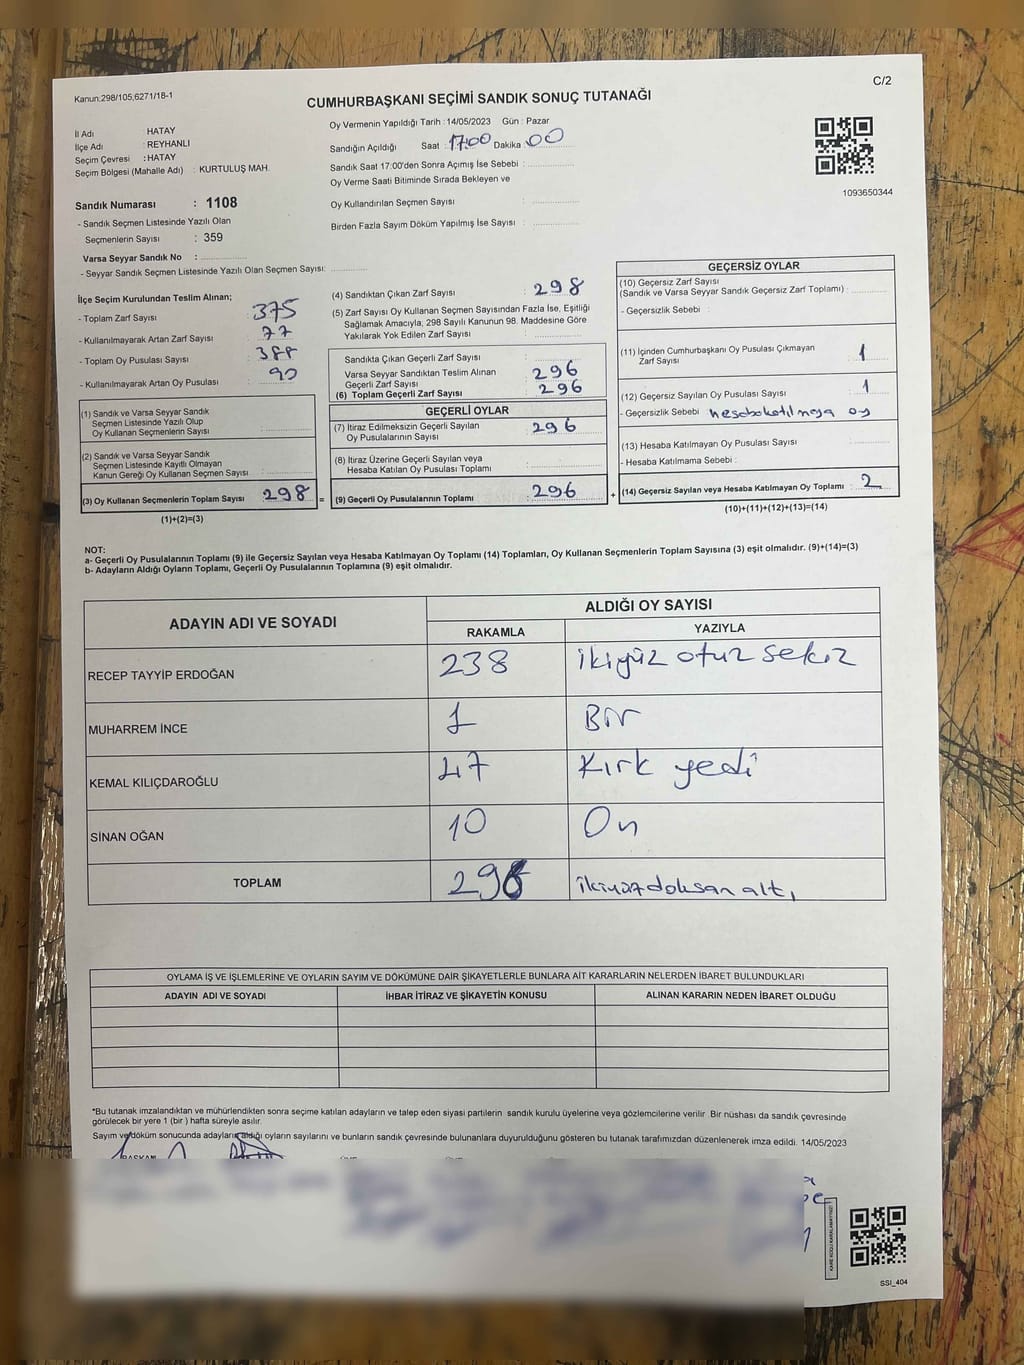 C/2
Kanun:298/105,6271/18-1
CUMHURBAŞKANI SEÇİMİ SANDIK SONUÇ TUTANAĞI
İl Adı HATAY
İlçe Adı : REYHANLI
Seçim Çevresi : HATAY
Seçim Bölgesi (Mahalle Adı) : KURTULUŞ MAH.
Sandık Numarası : 1108
- Sandık Seçmen Listesinde Yazılı Olan
Seçmenlerin Sayısı : 359
Varsa Seyyar Sandık No :
- Seyyar Sandık Seçmen Listesinde Yazılı Olan Seçmen Sayısı:
Oy Vermenin Yapıldığı Tarih : 14/05/2023 Gün : Pazar
Sandığın Açıldığı Saat : 17:00 Dakika : 00
Sandık Saat 17:00'den Sonra Açımış İse Sebebi :
Oy Verme Saati Bitiminde Sırada Bekleyen ve
Oy Kullandırılan Seçmen Sayısı :
Birden Fazla Sayım Döküm Yapılmış İse Sayısı :
1093650344
İlçe Seçim Kurulundan Teslim Alınan;
- Toplam Zarf Sayısı : 375
- Kullanılmayarak Artan Zarf Sayısı : 77
- Toplam Oy Pusulası Sayısı : 388
- Kullanılmayarak Artan Oy Pusulası : 90
(1) Sandık ve Varsa Seyyar Sandık
Seçmen Listesinde Yazılı Olup
Oy Kullanan Seçmenlerin Sayısı :
(2) Sandık ve Varsa Seyyar Sandık
Seçmen Listesinde Kayıtlı Olmayan
Kanun Gereği Oy Kullanan Seçmen Sayısı :
(3) Oy Kullanan Seçmenlerin Toplam Sayısı : 298 =
(1)+(2)=(3)
(4) Sandıktan Çıkan Zarf Sayısı : 298
(5) Zarf Sayısı Oy Kullanan Seçmen Sayısından Fazla İse, Eşitliği
Sağlamak Amacıyla, 298 Sayılı Kanunun 98. Maddesine Göre
Yakılarak Yok Edilen Zarf Sayısı :
Sandıkta Çıkan Geçerli Zarf Sayısı :
Varsa Seyyar Sandıktan Teslim Alınan
Geçerli Zarf Sayısı : 296
(6) Toplam Geçerli Zarf Sayısı : 296
GEÇERLİ OYLAR
(7) İtiraz Edilmeksizin Geçerli Sayılan
Oy Pusulalarının Sayısı : 296
(8) İtiraz Üzerine Geçerli Sayılan veya
Hesaba Katılan Oy Pusulası Toplamı :
(9) Geçerli Oy Pusulalarının Toplamı : 296 +
GEÇERSİZ OYLAR
(10) Geçersiz Zarf Sayısı
(Sandık ve Varsa Seyyar Sandık Geçersiz Zarf Toplamı) :
- Geçersizlik Sebebi :
(11) İçinden Cumhurbaşkanı Oy Pusulası Çıkmayan
Zarf Sayısı : 1
(12) Geçersiz Sayılan Oy Pusulası Sayısı : 1
- Geçersizlik Sebebi hesabakatılmaya oy
(13) Hesaba Katılmayan Oy Pusulası Sayısı :
- Hesaba Katılmama Sebebi :
(14) Geçersiz Sayılan veya Hesaba Katılmayan Oy Toplamı : 2
(10)+(11)+(12)+(13)=(14)
NOT:
a- Geçerli Oy Pusulalarının Toplamı (9) ile Geçersiz Sayılan veya Hesaba Katılmayan Oy Toplamı (14) Toplamları, Oy Kullanan Seçmenlerin Toplam Sayısına (3) eşit olmalıdır. (9)+(14)=(3)
b- Adayların Aldığı Oyların Toplamı, Geçerli Oy Pusulalarının Toplamına (9) eşit olmalıdır.
ADAYIN ADI VE SOYADI ALDIĞI OY SAYISI
RAKAMLA YAZIYLA
RECEP TAYYİP ERDOĞAN 238 ikiyüz otuz sekiz
MUHARREM İNCE 1 Bir
KEMAL KILIÇDAROĞLU 47 Kırk yedi
SİNAN OĞAN 10 On
TOPLAM 296 ikiyüzdoksan altı
OYLAMA İŞ VE İŞLEMLERİNE VE OYLARIN SAYIM VE DÖKÜMÜNE DAİR ŞİKAYETLERLE BUNLARA AİT KARARLARIN NELERDEN İBARET BULUNDUKLARI
ADAYIN ADI VE SOYADI İHBAR İTİRAZ VE ŞİKAYETİN KONUSU ALINAN KARARIN NEDEN İBARET OLDUĞU
*Bu tutanak imzalandıktan ve mühürlendikten sonra seçime katılan adayların ve talep eden siyasi partilerin sandık kurulu üyelerine veya gözlemcilerine verilir. Bir nüshası da sandık çevresinde
görülecek bir yere 1 (bir) hafta süreyle asılır.
Sayım ve döküm sonucunda adayların aldığı oyların sayılarını ve bunların sandık çevresinde bulunanlara duyurulduğunu gösteren bu tutanak tarafımızdan düzenlenerek imza edildi. 14/05/2023
BAŞKAN
SSI_404